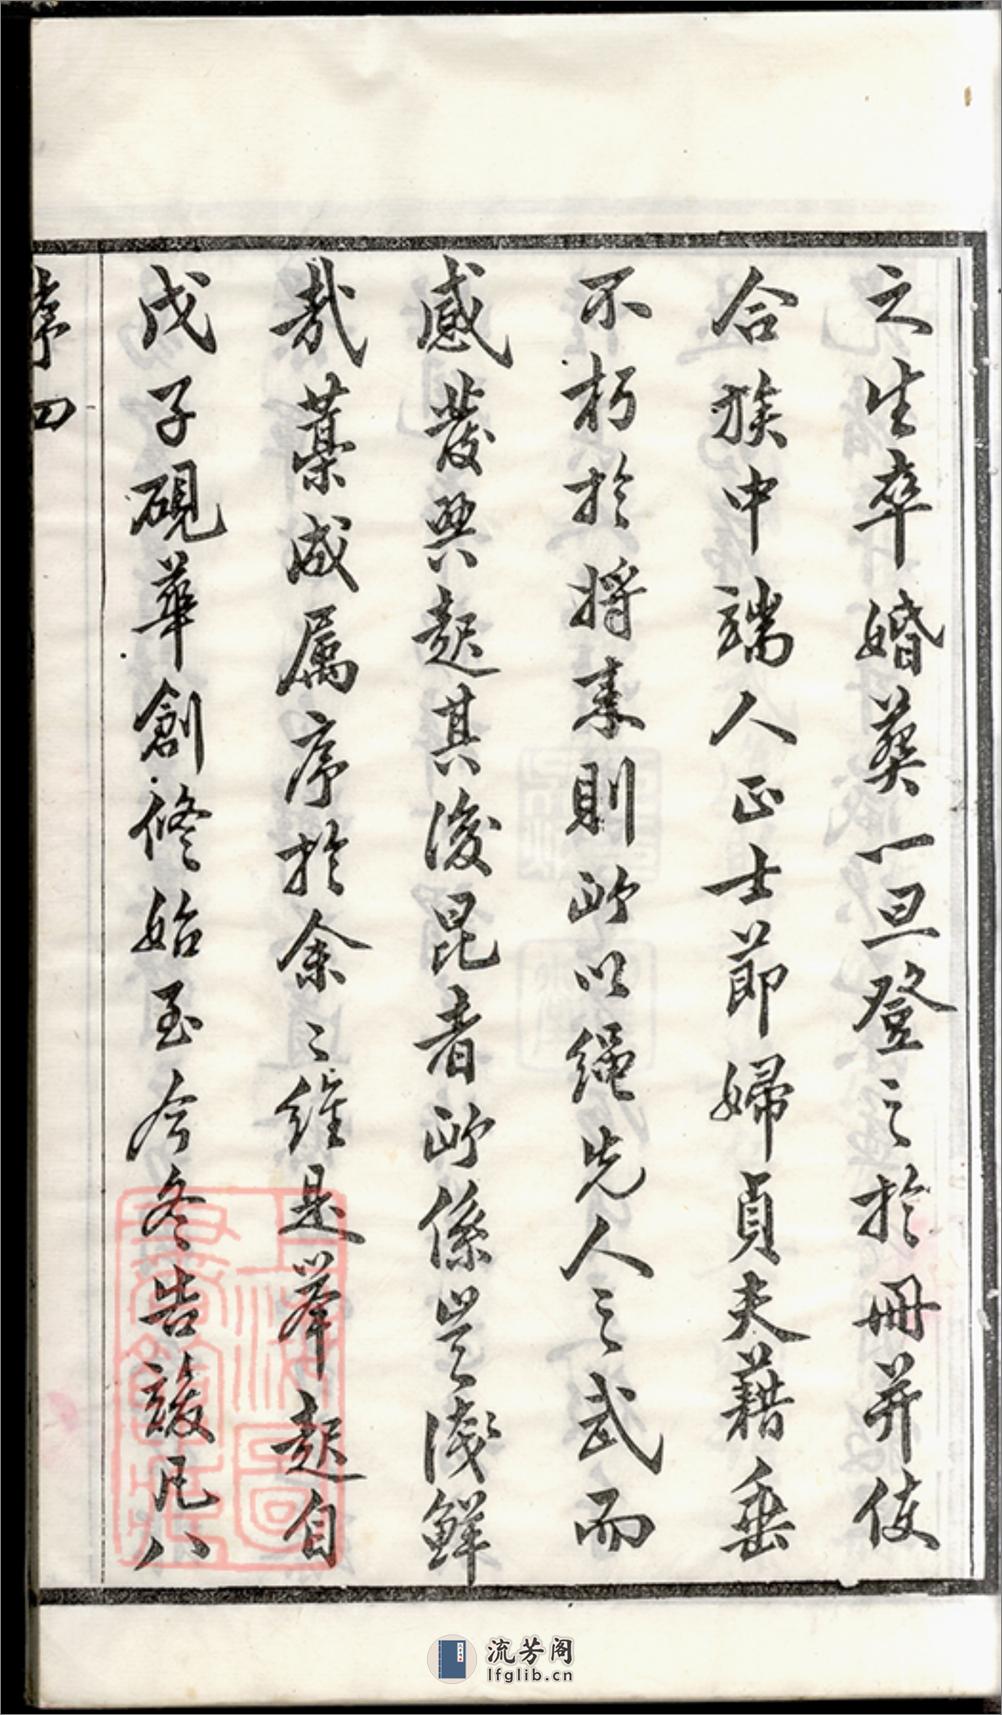 之生卒婚葬一旦登之於冊并使
合族中端人正士節婦貞夫藉垂
不朽於將來則所以繩先人之武而
感發興起其後昆者所係豈淺鮮
哉藁成属序於余〻維是举起自
戊子硯華創修始至今冬告竣凡八
序 四
流芳阁
lfglib.cn